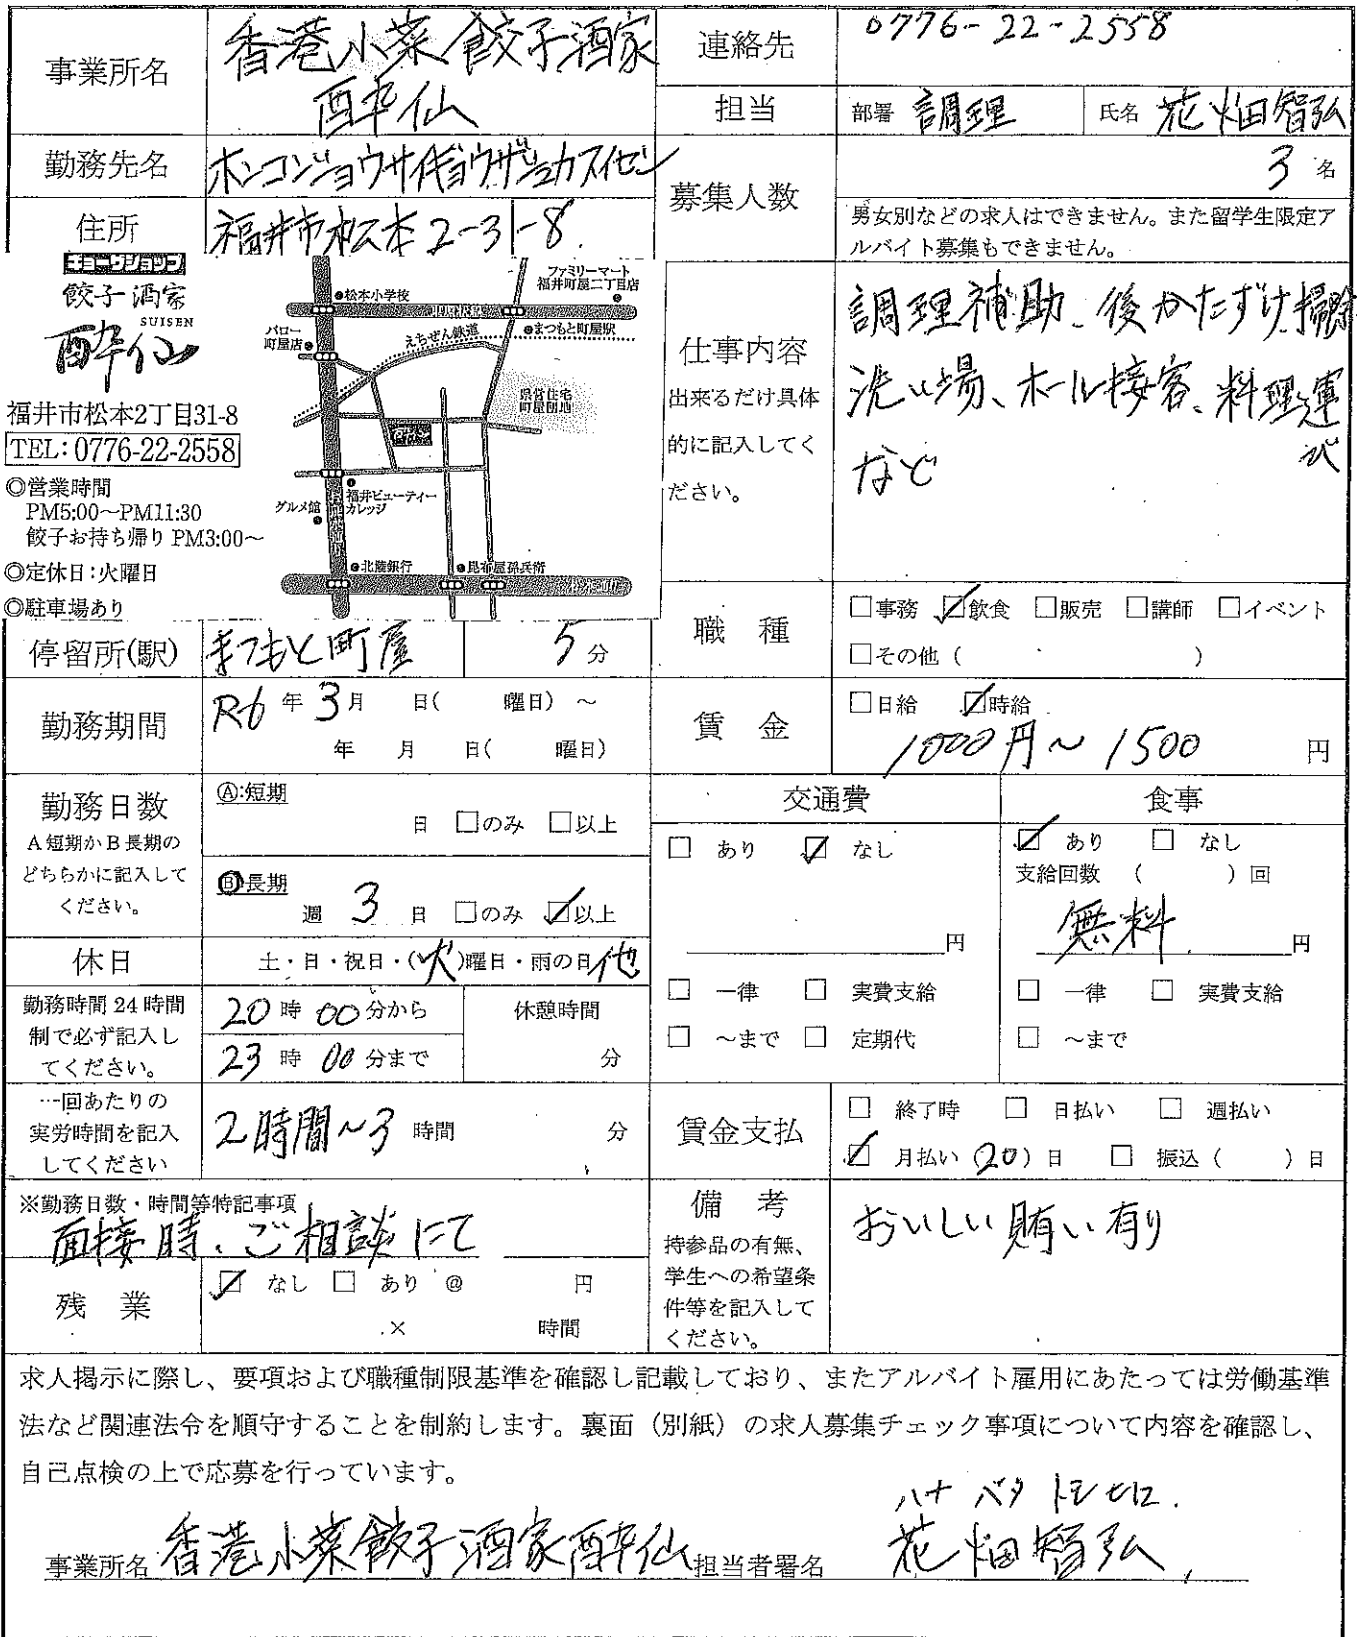 事業所名 香港小菜 餃子酒家
酔仙
連絡先 0776-22-2558
担当 部署 調理 氏名 花畑智弘
勤務先名
募集人数 3 名
男女別などの求人はできません。また留学生限定ア
ルバイト募集もできません。
住所 福井市松本2-31-8.
ギョーザショップ
餃子酒家
SUISEN
酔仙
福井市松本2丁目31-8
TEL:0776-22-2558
◎営業時間
PM5:00~PM11:30
餃子お持ち帰り PM3:00~
◎定休日:火曜日
◎駐車場あり
ファミリーマート
福井町屋二丁目店
松本小学校
バロー
町屋店
えちぜん鉄道
まつもと町屋駅
県営住宅
町屋団地
福井ビューティー
カレッジ
グルメ館
北陸銀行
昆布屋孫兵衛
仕事内容
出来るだけ具体
的に記入してく
ださい。
調理補助、後かたずけ、掃除
洗い場、ホール接客、料理運び
など
職 種 □事務 ☑飲食 □販売 □講師 □イベント
□その他 ( )
停留所(駅) まつもと町屋 5 分
勤務期間 R6 年 3 月 日( 曜日) ~
年 月 日( 曜日)
賃 金 □日給 ☑時給
1000円~1500 円
勤務日数
A短期かB長期の
どちらかに記入して
ください。
Ⓐ:短期
日 □のみ □以上
Ⓑ長期
週 3 日 □のみ ☑以上
交通費
□ あり ☑ なし
円
□ 一律 □ 実費支給
□ ~まで □ 定期代
食事
☑ あり □ なし
支給回数 ( ) 回
無料 円
□ 一律 □ 実費支給
□ ~まで
休日 土・日・祝日・(火)曜日・雨の日 他
勤務時間24時間
制で必ず記入し
てください。
20 時 00 分から
23 時 00 分まで
休憩時間
分
一回あたりの
実労時間を記入
してください
2時間~3 時間 分
賃金支払 □ 終了時 □ 日払い □ 週払い
☑ 月払い (20) 日 □ 振込 ( ) 日
※勤務日数・時間等特記事項
面接時、ご相談にて
残 業 ☑ なし □ あり @ 円
× 時間
備 考
持参品の有無、
学生への希望条
件等を記入して
ください。
おいしい賄い有り
求人掲示に際し、要項および職種制限基準を確認し記載しており、またアルバイト雇用にあたっては労働基準
法など関連法令を順守することを制約します。裏面（別紙）の求人募集チェック事項について内容を確認し、
自己点検の上で応募を行っています。
ハナ バタ トモヒロ.
事業所名 香港小菜餃子酒家酔仙 担当者署名 花畑智弘